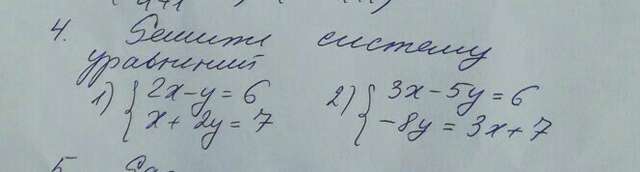 4. Решите систему
уравнений
1) { 2x-y=6 2) { 3x-5y=6
x+2y=7 -8y=3x+7
5.